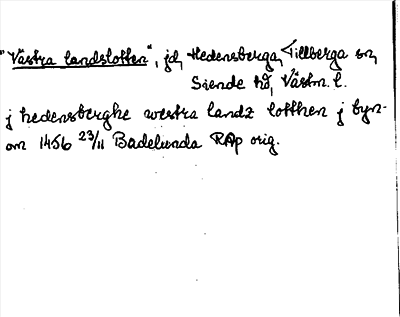 "Västra landslotten", jd, Hedensberga, Tillberga sn,
Siende hd, Västm. l.
j hedensberghe westra landz lotthen j byn-
om 1456 23/11 Badelunda RAp orig.